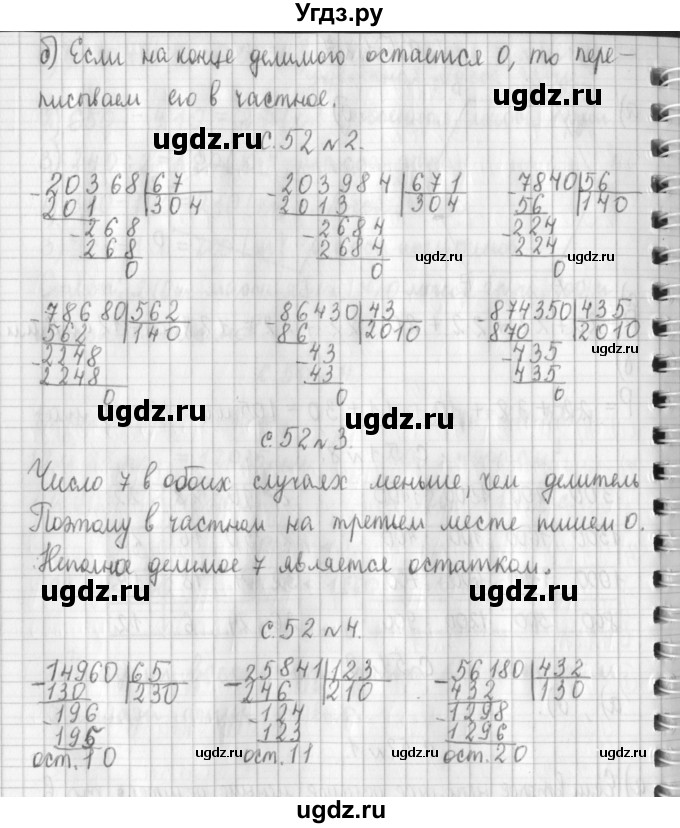 Угдз.ру
б) Если на конце делимого остается 0, то пере-
писываем его в частное.
ugdz.ru
ugdz.ru
с. 52 № 2.
-20368 | 67
201 | 304
-268
268
0
-203984 | 671
2013 | 304
-2684
2684
0
-7840 | 56
56 | 140
-224
224
0
ugdz.ru
ugdz.ru
ugdz.ru
-78680 | 562
562 | 140
-2248
2248
0
-86430 | 43
86 | 2010
-43
43
0
-874350 | 435
870 | 2010
-435
435
0
ugdz.ru
ugdz.ru
ugdz.ru
с. 52 № 3.
Число 7 в обоих случаях меньше, чем делитель
Поэтому в частном на третьем месте пишем 0.
Неполное делимое 7 является остатком.
ugdz.ru
ugdz.ru
с. 52 № 4.
-14960 | 65
130 | 230
-196
195
ост. 10
-25841 | 123
246 | 210
-124
123
ост. 11
-56180 | 432
432 | 130
-1298
1296
ост. 20
ugdz.ru
ugdz.ru
ugdz.ru
ugdz.ru
ugdz.ru